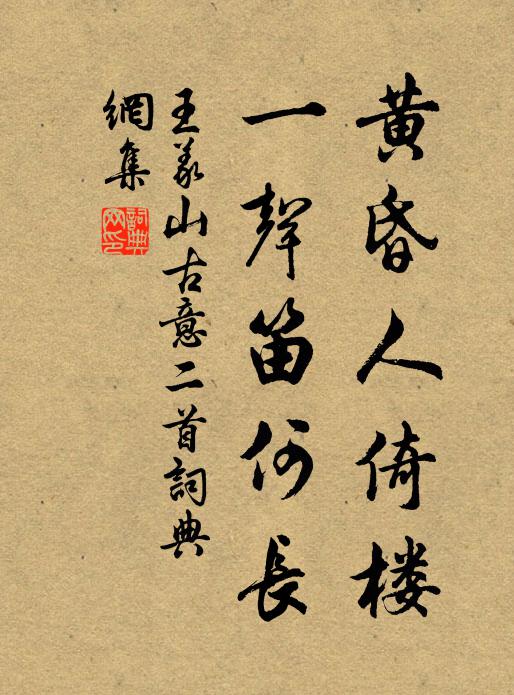 黄昏人倚楼
一聲笛何長
王義山古意二首詞典
網集
詞典
网印